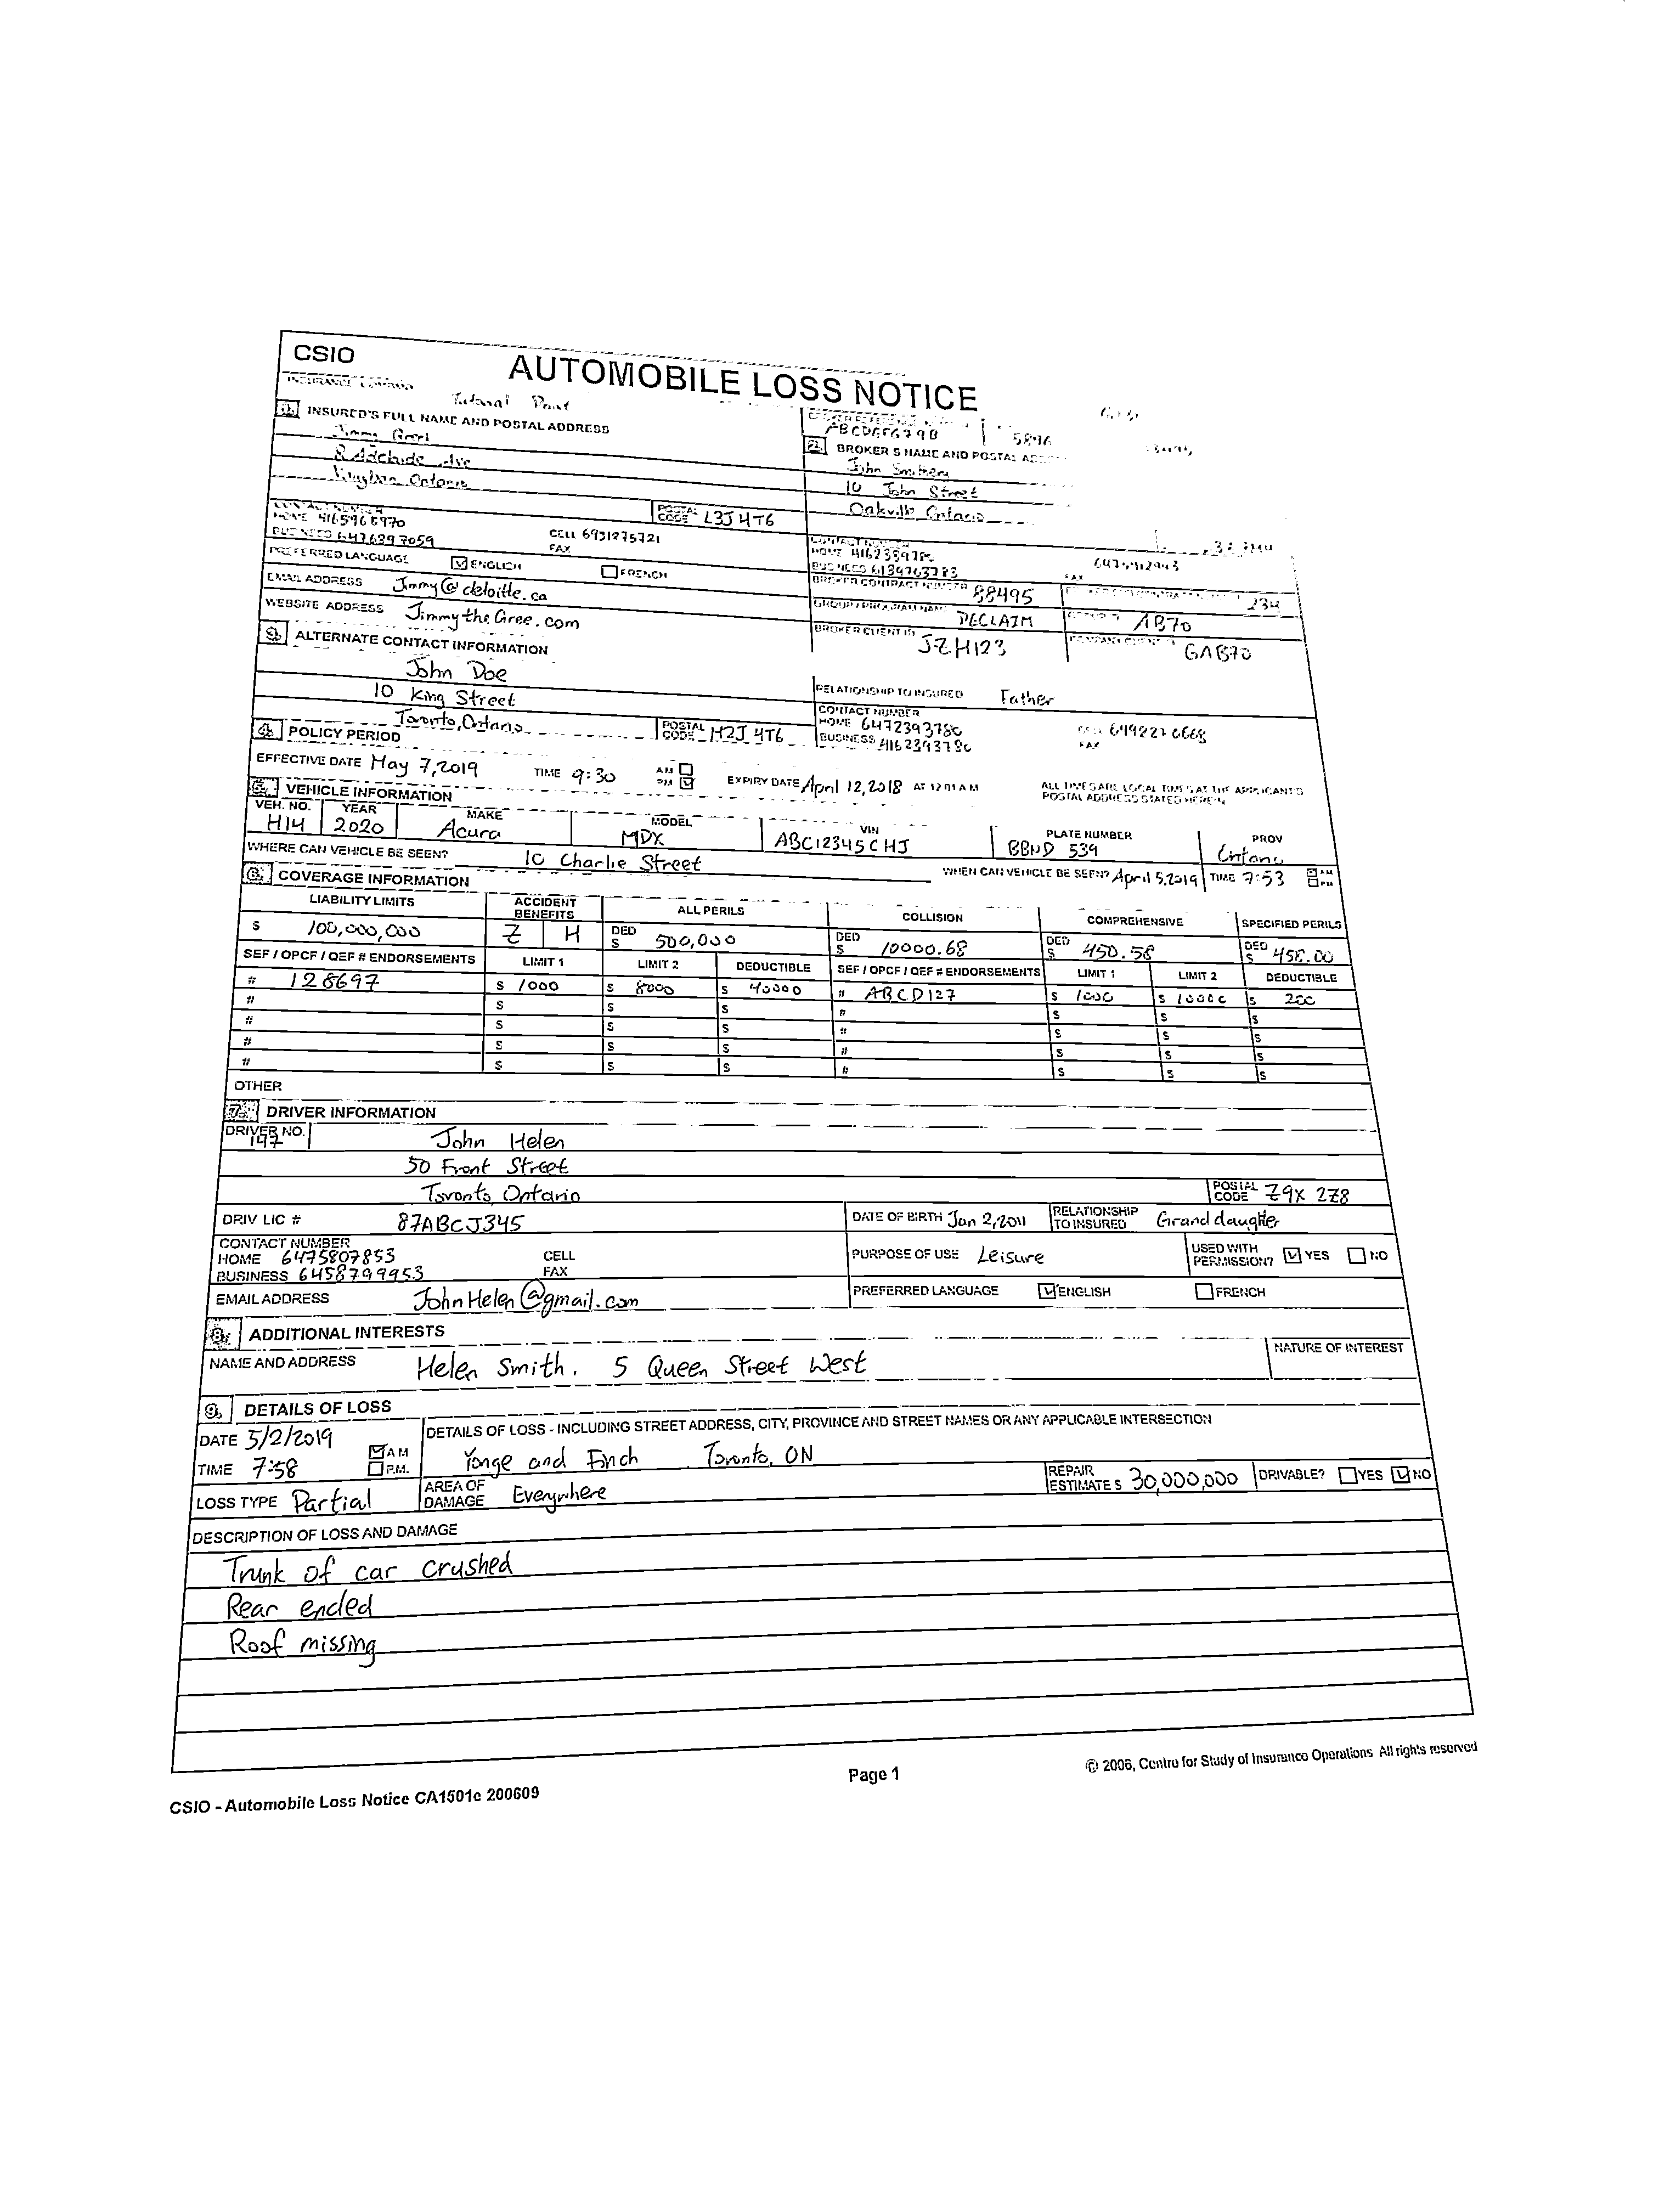 CSIO
AUTOMOBILE LOSS NOTICE
INSURANCE COMPANY
1. INSURED'S FULL NAME AND POSTAL ADDRESS
8 Adelaide Ave
Ontario
POSTAL CODE L3J 4T6
CONTACT NUMBER
HOME 4165968970
CELL 6931875721
BUSINESS 6476897059
FAX
PREFERRED LANGUAGE ENGLISH FRENCH
EMAIL ADDRESS Jimmy@deloitte.ca
WEBSITE ADDRESS JimmytheGree.com
5896
2. BROKER'S NAME AND POSTAL ADDRESS
John Smithery
10 John Street
Oakville Ontario
CONTACT NUMBER
HOME
BUSINESS 6139763783
FAX
BROKER CONTRACT NUMBER 88495
234
GROUP / PROGRAM NAME DECLAIM
AB70
BROKER CLIENT ID JZH123
COMPANY CLIENT ID GAB70
3. ALTERNATE CONTACT INFORMATION
John Doe
10 King Street
Toronto, Ontario
POSTAL CODE M2J 4T6
RELATIONSHIP TO INSURED Father
CONTACT NUMBER
HOME 6472393780
BUSINESS 4162393780
FAX
4. POLICY PERIOD
EFFECTIVE DATE May 7, 2019 TIME 9:30 AM PM EXPIRY DATE April 12, 2018 AT 12 01 A M ALL TIMES ARE LOCAL TIMES AT THE APPLICANT'S
POSTAL ADDRESS STATED HEREIN
5. VEHICLE INFORMATION
VEH. NO. YEAR MAKE MODEL VIN PLATE NUMBER PROV
H14 2020 Acura MDX ABC12345CHJ BBND 539 Ontario
WHERE CAN VEHICLE BE SEEN? 10 Charlie Street WHEN CAN VEHICLE BE SEEN? April 5, 2019 TIME 7:53 AM PM
6. COVERAGE INFORMATION
LIABILITY LIMITS ACCIDENT BENEFITS ALL PERILS COLLISION COMPREHENSIVE SPECIFIED PERILS
$ 100,000,000 Z H DED $ 500,000 DED $ 10000.68 DED $ 450.58 DED $ 458.00
SEF / OPCF / QEF # ENDORSEMENTS LIMIT 1 LIMIT 2 DEDUCTIBLE SEF / OPCF / QEF # ENDORSEMENTS LIMIT 1 LIMIT 2 DEDUCTIBLE
# 128697 $ 1000 $ 8000 $ 40000 # ABCD127 $ 1000 $ 10000 $ 200
# $ $ $ # $ $ $
# $ $ $ # $ $ $
# $ $ $ # $ $ $
# $ $ $ # $ $ $
OTHER
7. DRIVER INFORMATION
DRIVER NO. 147 John Helen
50 Front Street
Toronto Ontario
POSTAL CODE Z9X 2Z8
DRIV LIC # 87ABCJ345 DATE OF BIRTH Jan 2, 2011 RELATIONSHIP TO INSURED Grand daughter
CONTACT NUMBER
HOME 6475807853 CELL
BUSINESS 6458799953 FAX
PURPOSE OF USE Leisure USED WITH PERMISSION? YES NO
EMAIL ADDRESS JohnHelen@gmail.com PREFERRED LANGUAGE ENGLISH FRENCH
8. ADDITIONAL INTERESTS
NAME AND ADDRESS Helen Smith. 5 Queen Street West NATURE OF INTEREST
9. DETAILS OF LOSS
DATE 5/2/2019 DETAILS OF LOSS - INCLUDING STREET ADDRESS, CITY, PROVINCE AND STREET NAMES OR ANY APPLICABLE INTERSECTION
TIME 7:58 AM P.M. Yonge and Finch Toronto, ON
LOSS TYPE Partial AREA OF DAMAGE Everywhere REPAIR ESTIMATE $ 30,000,000 DRIVABLE? YES NO
DESCRIPTION OF LOSS AND DAMAGE
Trunk of car crushed
Rear ended
Roof missing
Page 1
© 2006, Centre for Study of Insurance Operations All rights reserved
CSIO - Automobile Loss Notice CA1501e 200609